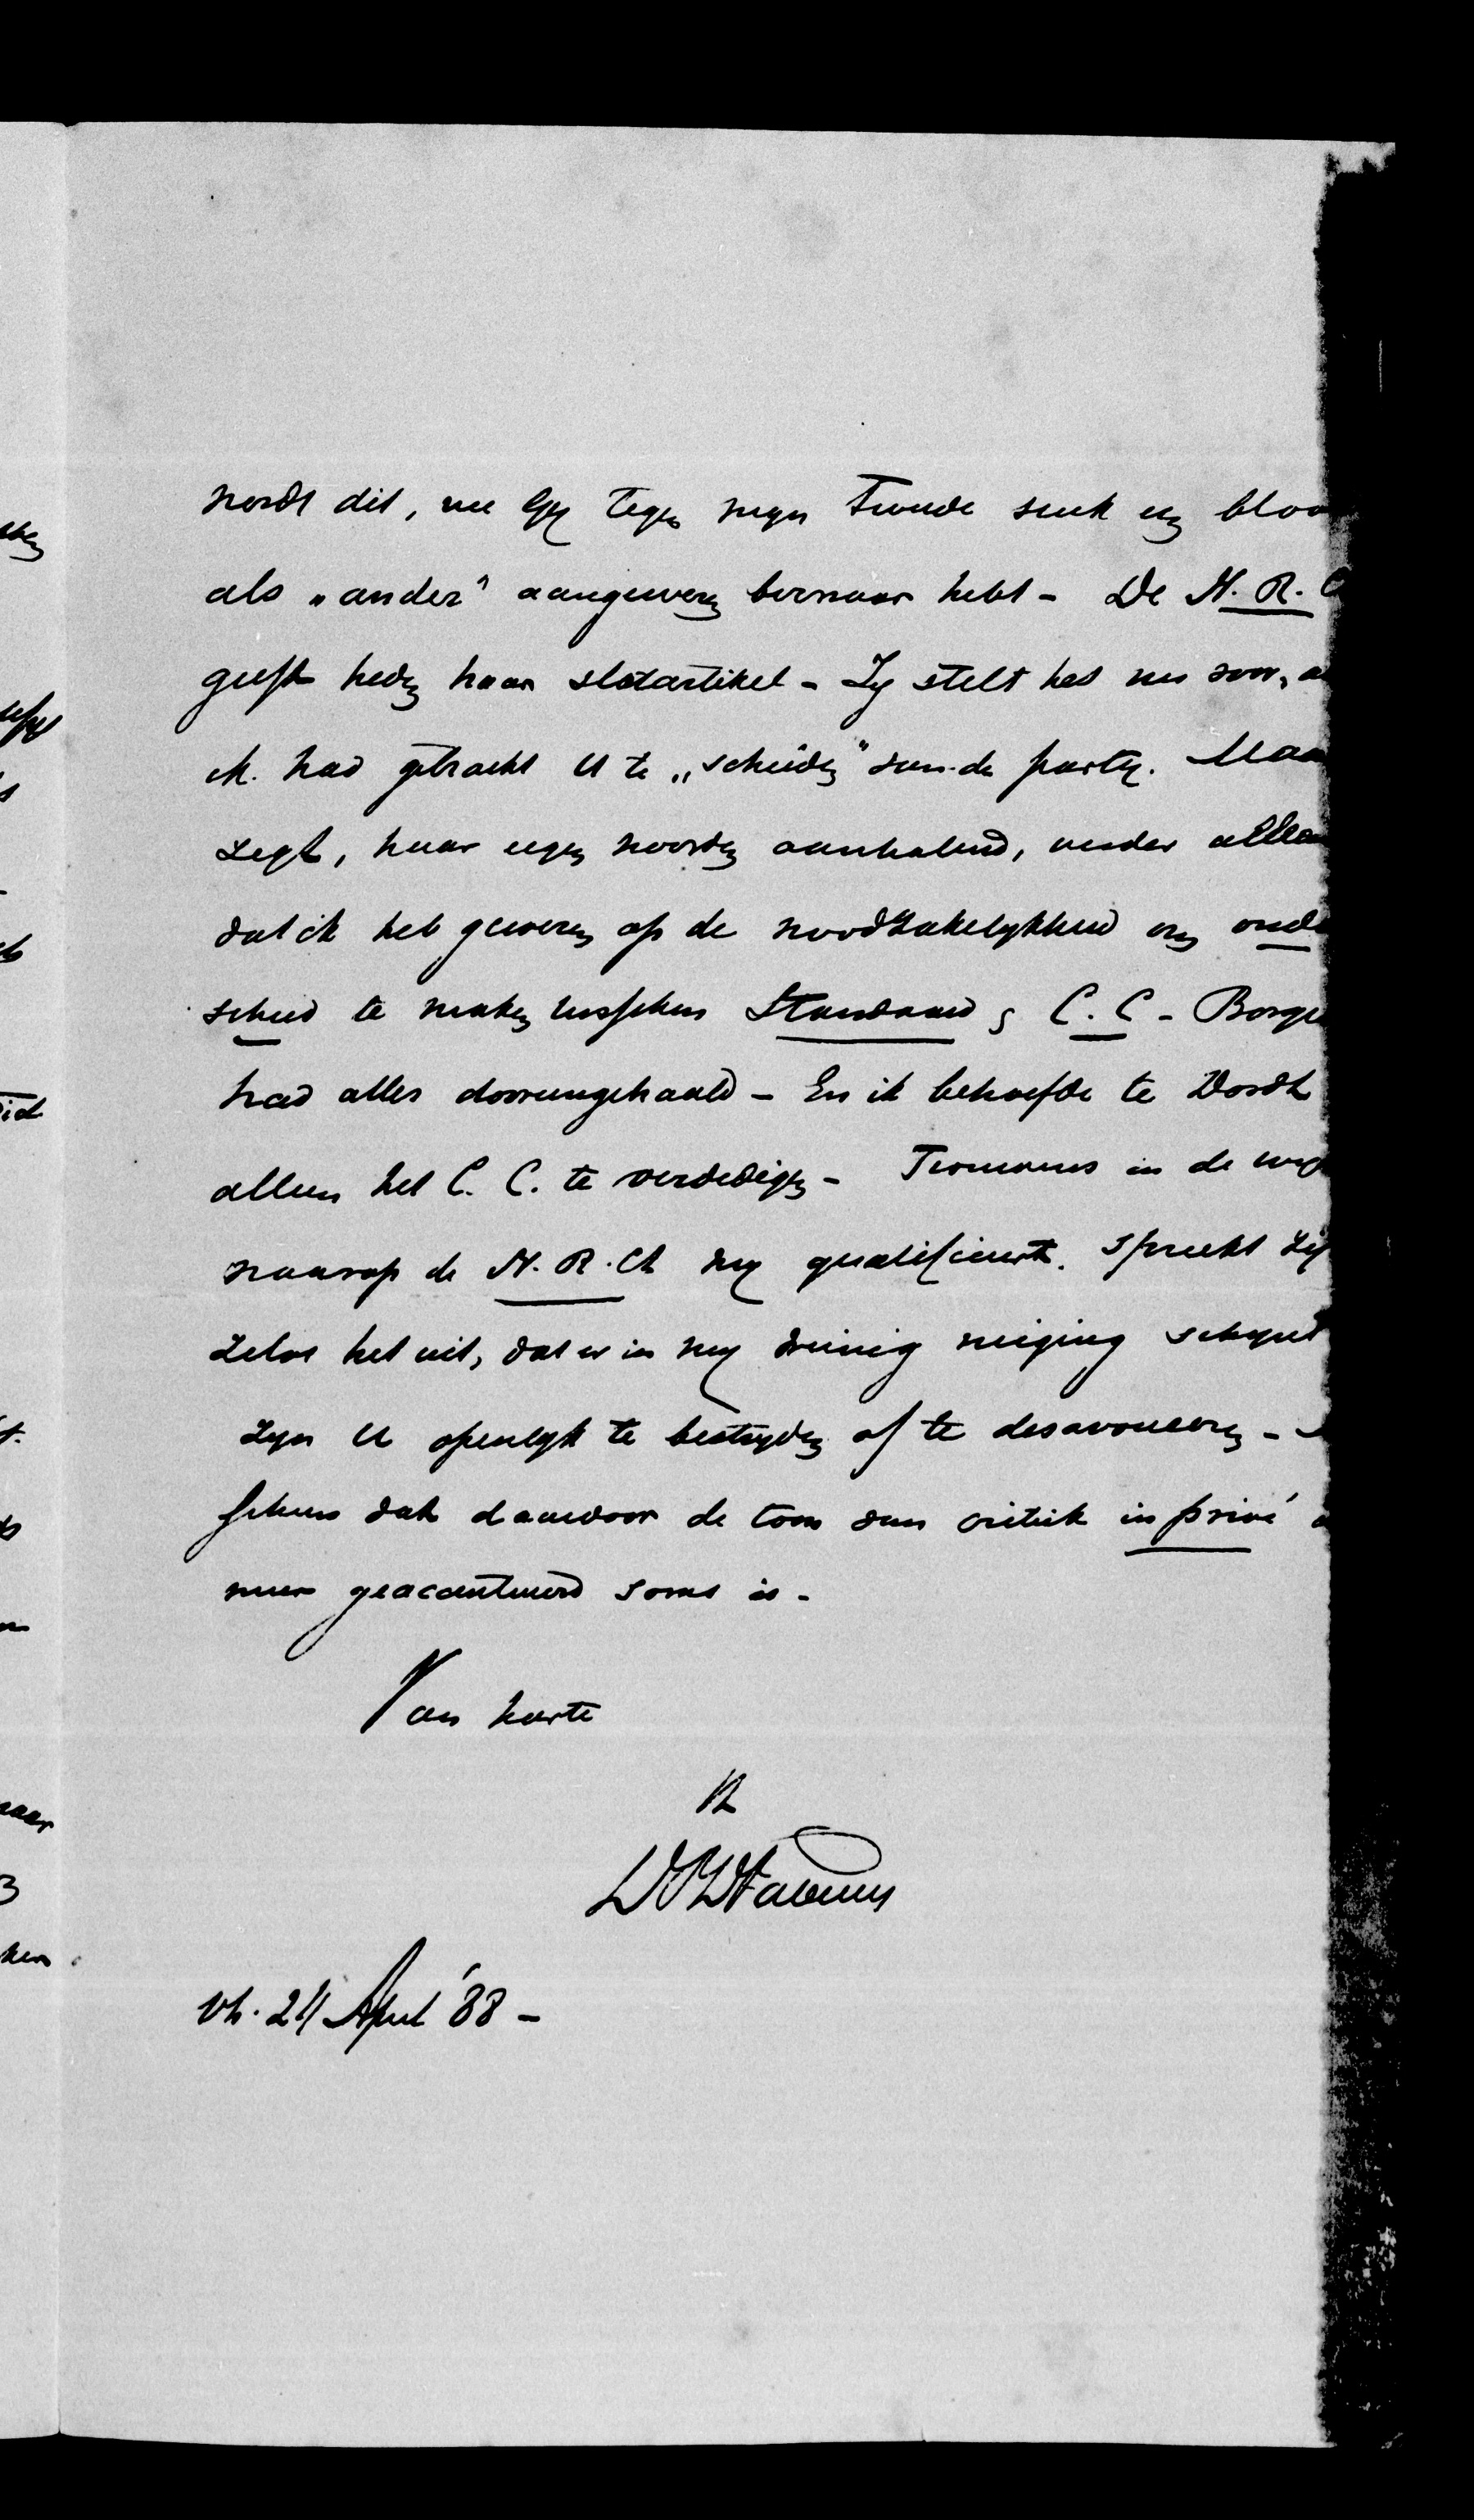 wordt dit, nu Gy tegen myn tweede stuk een bloo
als „ander" aangewezen bezwaar hebt - De N. R. C
geeft heden haar slotartikel - Zy stelt het nu voor, a
ik had getracht U te „scheiden" van de party. Maa
zegt, haar eigen woorden aanhalend, verder allee
dat ik heb gewezen op de noodzakelykheid om onde
scheid te maken tusschen Standaard & C. C - Borge
had alles dooreengehaald - En ik behoefde te Dordt
alleen het C. C. te verdedigen - Trouwens in de
waarop de N. R. Ct my qualificeert, spreekt zy
zelve het uit, dat er in my weinig neiging schynt
zyn U openlyk te bestryden of te desavoueeren -
schien dat daardoor de toon van critiek in privé
meer geaccentueerd soms is -
Van harte
24 April '88 -